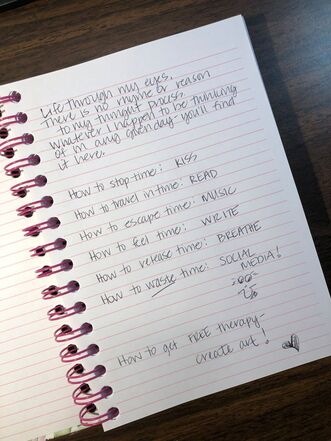 Life through my eyes.
There is no rhyme or reason
to my thought process.
Whatever I happen to be thinking
of on any given day you'll find
it here.
How to stop time: KISS
How to travel in time: READ
How to escape time: MUSIC
How to feel time: WRITE
How to release time: BREATHE
How to waste time: SOCIAL
MEDIA!
How to get FREE therapy-
create art!